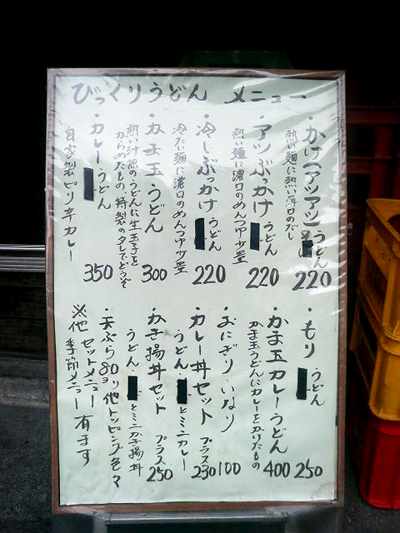 びっくりうどん メニュー
・かけ(アツアツ)うどん 220
熱い麺に熱い薄口のだし
・アツぶっかけうどん 220
熱い麺に濃口のめんつゆ少量
・冷しぶっかけうどん 220
冷たい麺に濃口のめんつゆ少量
・かま玉うどん 300
熱い汁無のうどんに生玉子を
からめたもの、特製のタレでどうぞ
・カレーうどん 350
自家製ピリ辛カレー
・もりうどん 250
・かま玉カレーうどん 400
かま玉うどんにカレーをかけたもの
・おにぎり いなり 100
・カレー丼セット プラス230
うどんとミニカレー
・かき揚丼セット プラス250
うどんとミニかき揚丼
・天ぷら80ヨリ他トッピング色々
※他 セットメニュー
季節メニュー 有ます